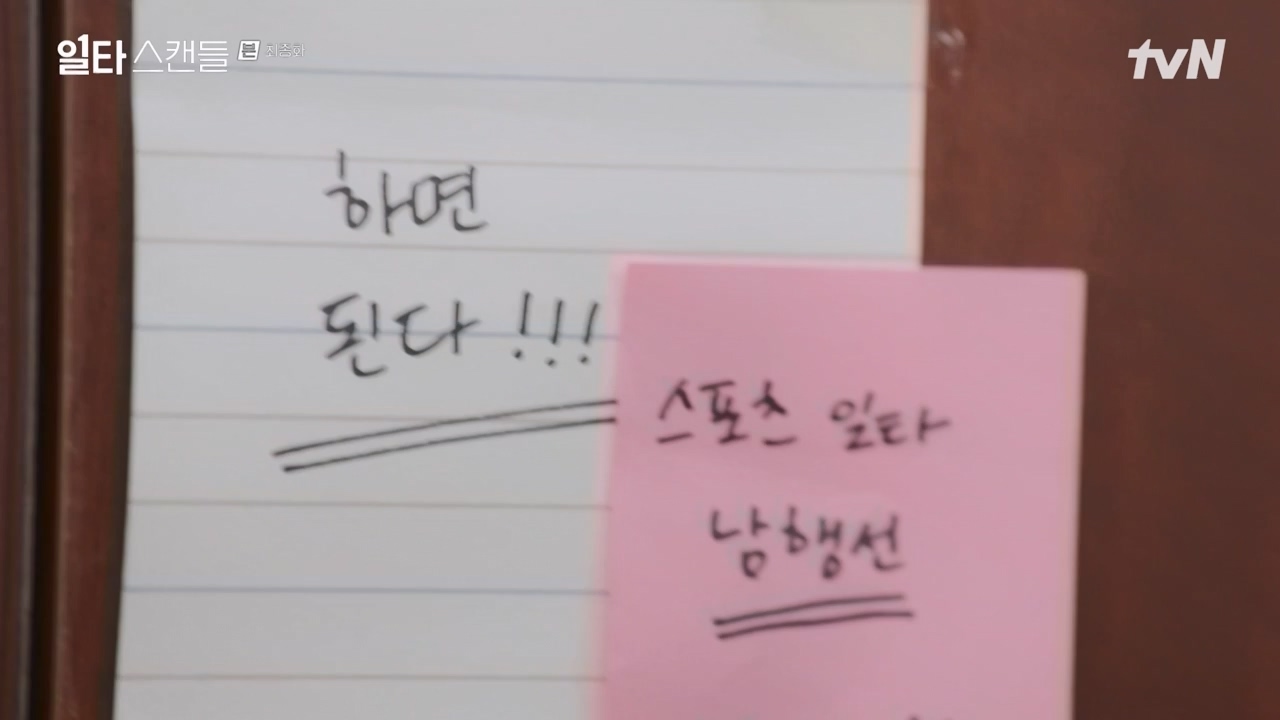 일타스캔들 최종화
tvN
하면
된다!!!
스포츠 일타
남행선